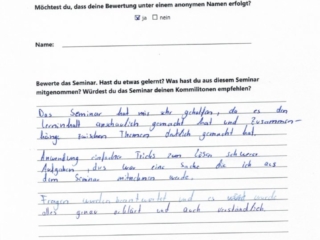 Möchtest du, dass deine Bewertung unter einem anonymen Namen erfolgt?
ja nein
Name:
Bewerte das Seminar. Hast du etwas gelernt? Was hast du aus diesem Seminar
mitgenommen? Würdest du das Seminar deinen Kommilitonen empfehlen?
Das Seminar hat mir sehr geholfen, da es den
Lerninhalt verständlich gemacht hat und Zusammen-
hänge zwischen Themen deutlich gemacht hat.
Anwendung einfacher Tricks zum lösen schwerer
Aufgaben, dies war eine Sache die ich aus
dem Seminar mitnehmen würde.
Fragen wurden beantwortet und es wurde
alles genau erklärt und auch verständlich